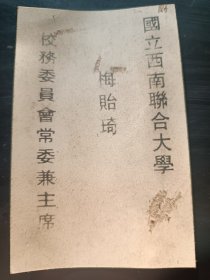 國立西南聯合大學
梅貽琦
校務委員會常委兼主席